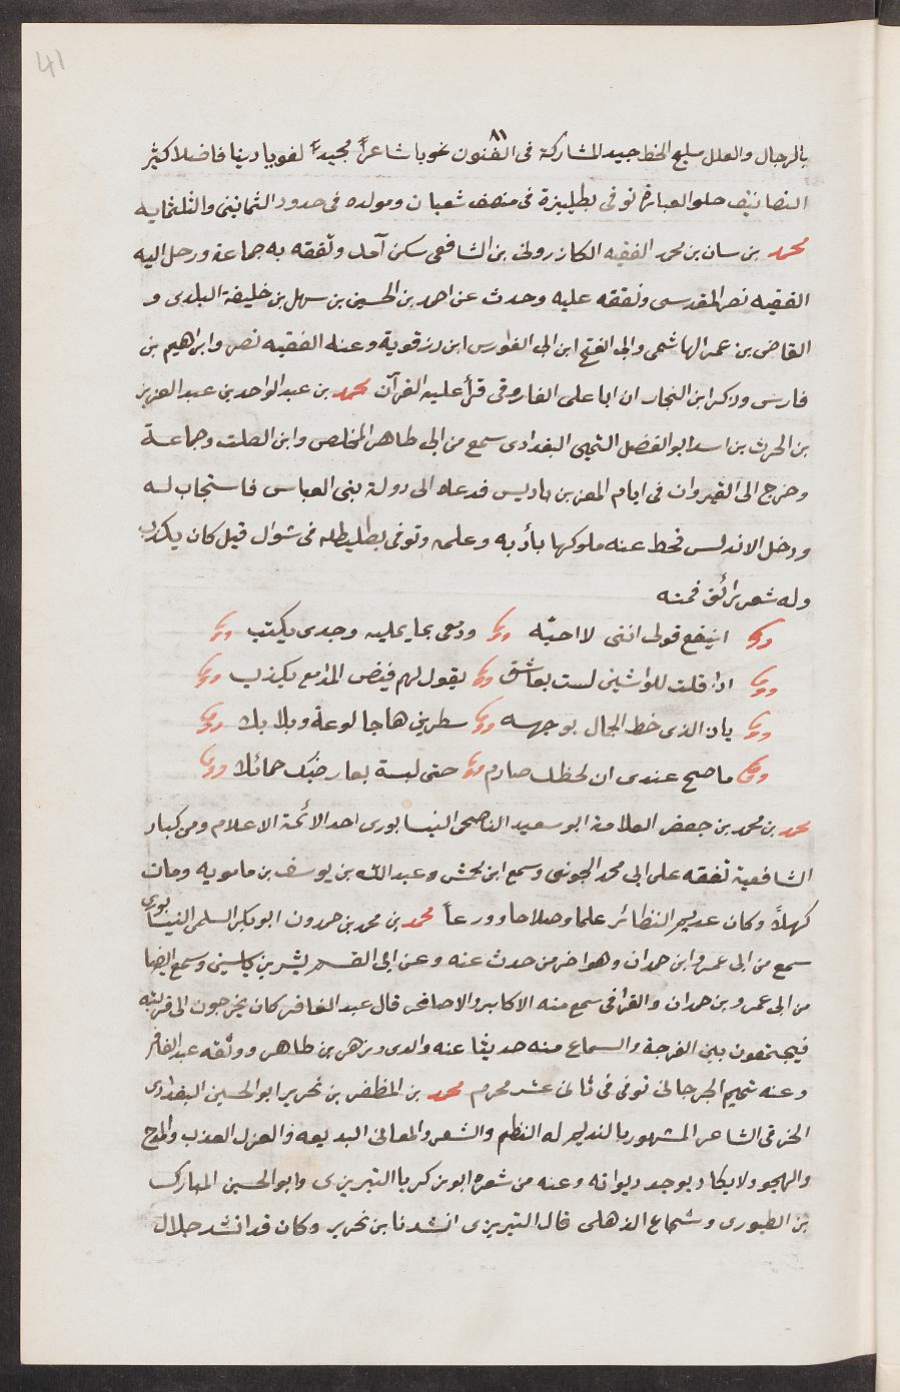 41
٨١
بالرجال والعلل مليح الخط جيد المشاركة فى الفنون نحويا شاعراً مجيداً لغويا دينا فاضلا كثير
التصانيف حلو العبارة توفى بطلبيرة فى منصف شعبان ومولده فى حدود الثمانين والثلثمايه
محمد بن بيان بن محمد الفقيه الكازرونى بن الشافعى سكن آمد وتفقه به جماعة ورحل اليه
الفقيه نصر المقدسى وتفقه عليه وحدث عن احمد بن الحسين بن سهل بن خليفة البلدى و
القاضى بن عمر الهاشمى وابى الفتح ابن ابى الفوارس ابن رزقوية وعنه الفقيه نصر وابراهيم بن
فارس وذكر ابن النجار ان ابا على الفارقى قرأ عليه القرآن محمد بن عبد الواحد بن عبد العزيز
بن الحرث بن اسد ابو الفضل التميمى البغدادى سمع من ابى طاهر المخلص وابن الصلت وجماعة
وخرج الى القيروان فى ايام المعز بن باديس فدعاه الى دولة بنى العباس فاستجاب له
ودخل الاندلس فحظ عنه ملوكها بأدبه وعلمه وتوفى بطليطله فى شوال قيل كان يكذب
وله شعر رائق فمنه
اينفع قولى اننى لا احبّه ودمعى بما يمليه وجدى يكتب
اذا قلت للواشين لست بعاشق يقول لهم فيض المدامع يكذب
ياذا الذى خط الجمال بوجهه سطرين هاجا لوعة وبلابلا
ما صح عندى ان لحظك صارم حتى لبست بعارضيك حمائلا
محمد بن محمد بن جعفر العلامة ابو سعيد الناصحى النيسابورى احد الائمة الاعلام ومن كبار
الشافعية تفقه على ابى محمد الجوينى وسمع ابن محمش وعبد الله بن يوسف بن مامويه ومات
كهلاً وكان عديم النظائر علما وصلاحا وورعاً محمد بن محمد بن حمدون ابو بكر السلمى النيسابورى
سمع من ابى عمرو ابن حمدان وهو اخر من حدث عنه وعن ابى القسم بشر بن ياسين وسمع ايضا
من ابى عمرو بن حمدان والقرافى سمع منه الاكابر والاصاغر قال عبد الغافر كان يخرجون الى قريته
فيجتمعون بين الفرجة والسماع منه حديثا عنه والدى وزهر بن طاهر ووثقه عبد الغافر
وعنه تميم الجرجانى توفى فى ثانى عشر محرم محمد بن المظفر بن نحرير ابو الحسين البغدادى
الخرقى الشاعر المشهور بالنديم له النظم والشعر والمعانى البديعه والغزل العذب والمدح
والهجو ولا يكاد يوجد ديوانه وعنه من شعره ابو زكريا التبريزى وابو الحسين المبارك
بن الطيورى وشجاع الذهلى قال التبريزى انشدنا بن نحرير وكان قد انشد جلال